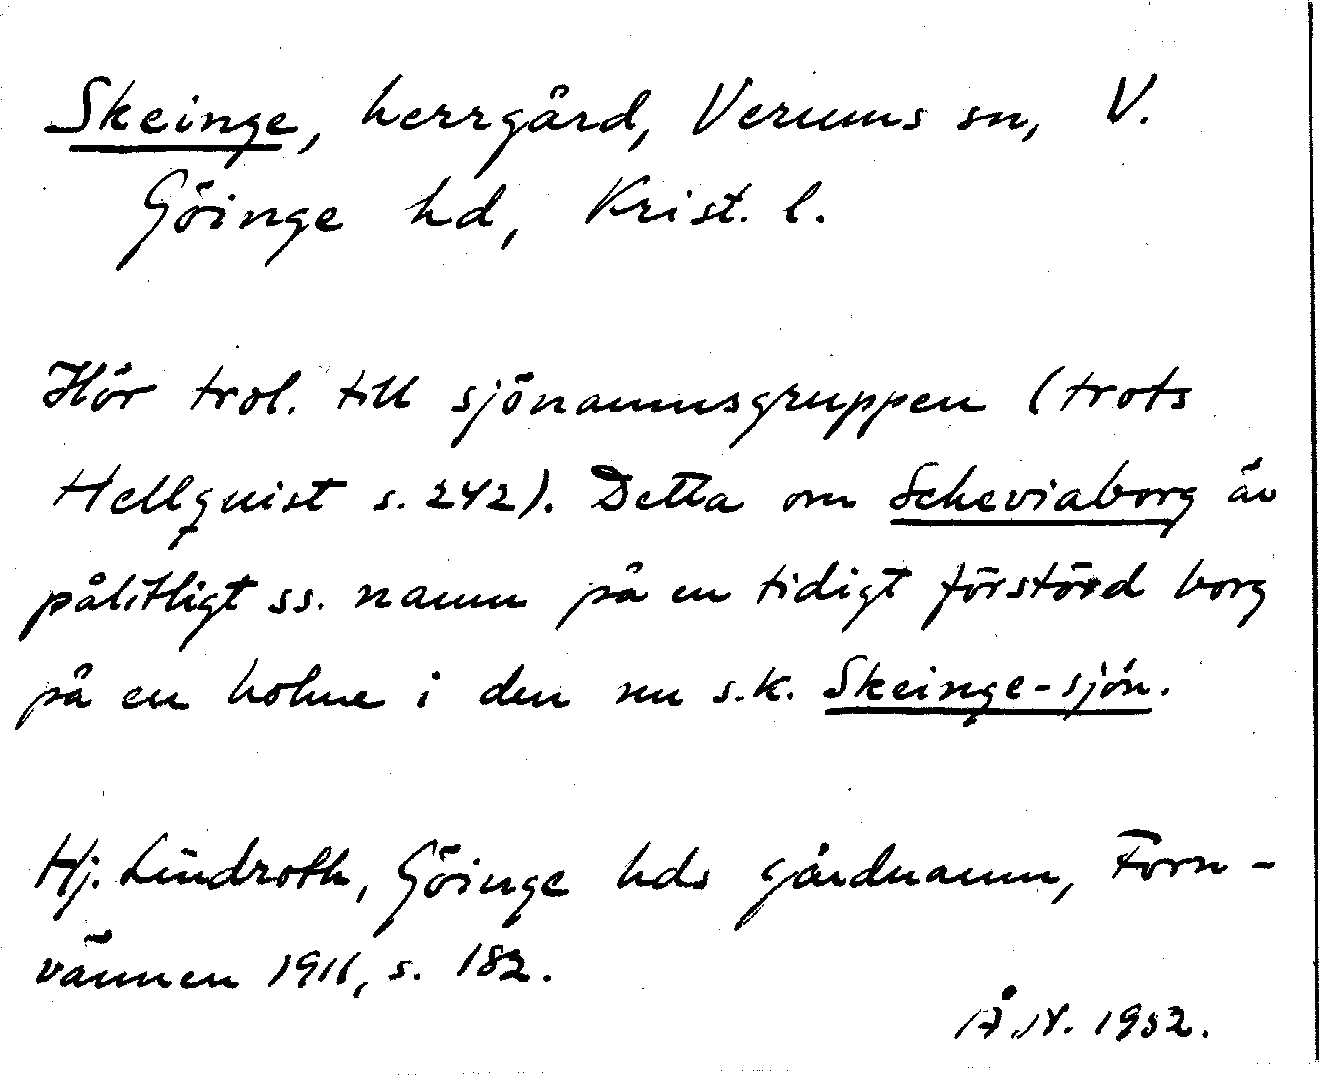 Skeinge, herrgård, Verums sn, V.
Göinge hd, Krist. l.
Hör trol. till sjönamnsgruppen (trots
Hellquist s. 242). Detta om Scheviaborg är
pålitligt ss. namn på en tidigt förstörd borg
på en holme i den nu s.k. Skeinge-sjön.
Hj. Lindroth, Göinge hds gårdnamn, Forn-
vännen 1911, s. 182.
Å.N. 1952.